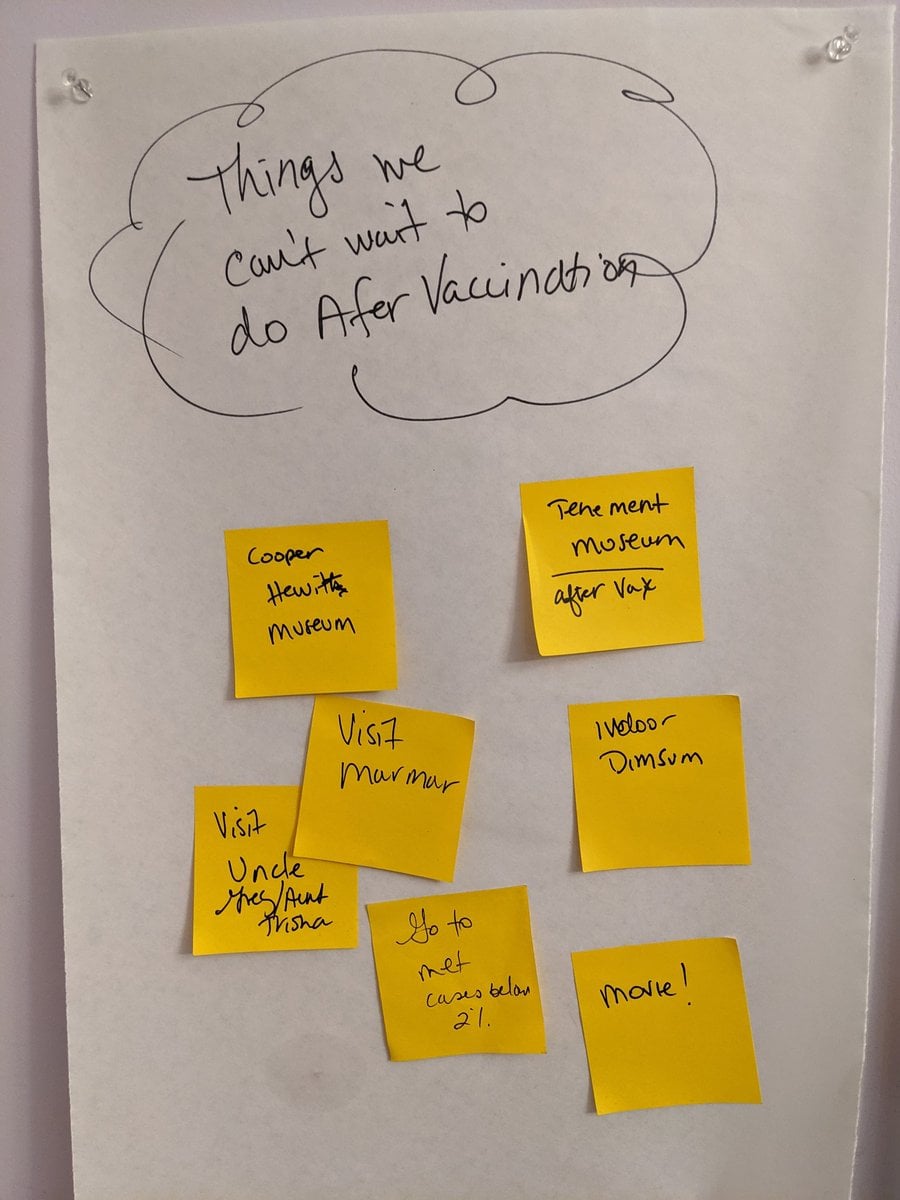 Things we
can't wait to
do Afer Vaccination
Cooper
Hewitt
museum
Tenement
museum
after Vax
Visit
Marmar
Indoor
Dimsum
Visit
Uncle
Greg/Aunt
Trisha
Go to
met
cases below
2%
movie!